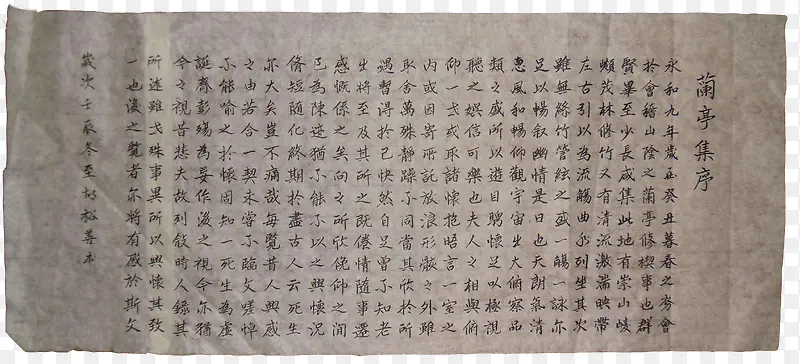 蘭亭集序
永和九年歲在癸丑暮春之初會
於會稽山陰之蘭亭修禊事也群
賢畢至少長咸集此地有崇山峻
嶺茂林修竹又有清流激湍映帶
左右引以為流觴曲水列坐其次
雖無絲竹管絃之盛一觴一詠亦
足以暢叙幽情是日也天朗氣清
惠風和暢仰觀宇宙之大俯察品
類之盛所以遊目騁懷足以極視
聽之娛信可樂也夫人之相與俯
仰一世或取諸懷抱晤言一室之
內或因寄所託放浪形骸之外雖
取舍萬殊靜躁不同當其欣於所
遇暫得於己快然自足曾不知老
之將至及其所之既倦情隨事遷
感慨係之矣向之所欣俛仰之間
已為陳迹猶不能不以之興懷況
脩短隨化終期於盡古人云死生
亦大矣豈不痛哉每覽昔人興感
之由若合一契未嘗不臨文嗟悼
不能喻之於懷固知一死生為虛
誕齊彭殤為妄作後之視今亦猶
今之視昔悲夫故列叙時人錄其
所述雖世殊事異所以興懷其致
一也後之覽者亦將有感於斯文
歲次壬辰冬至